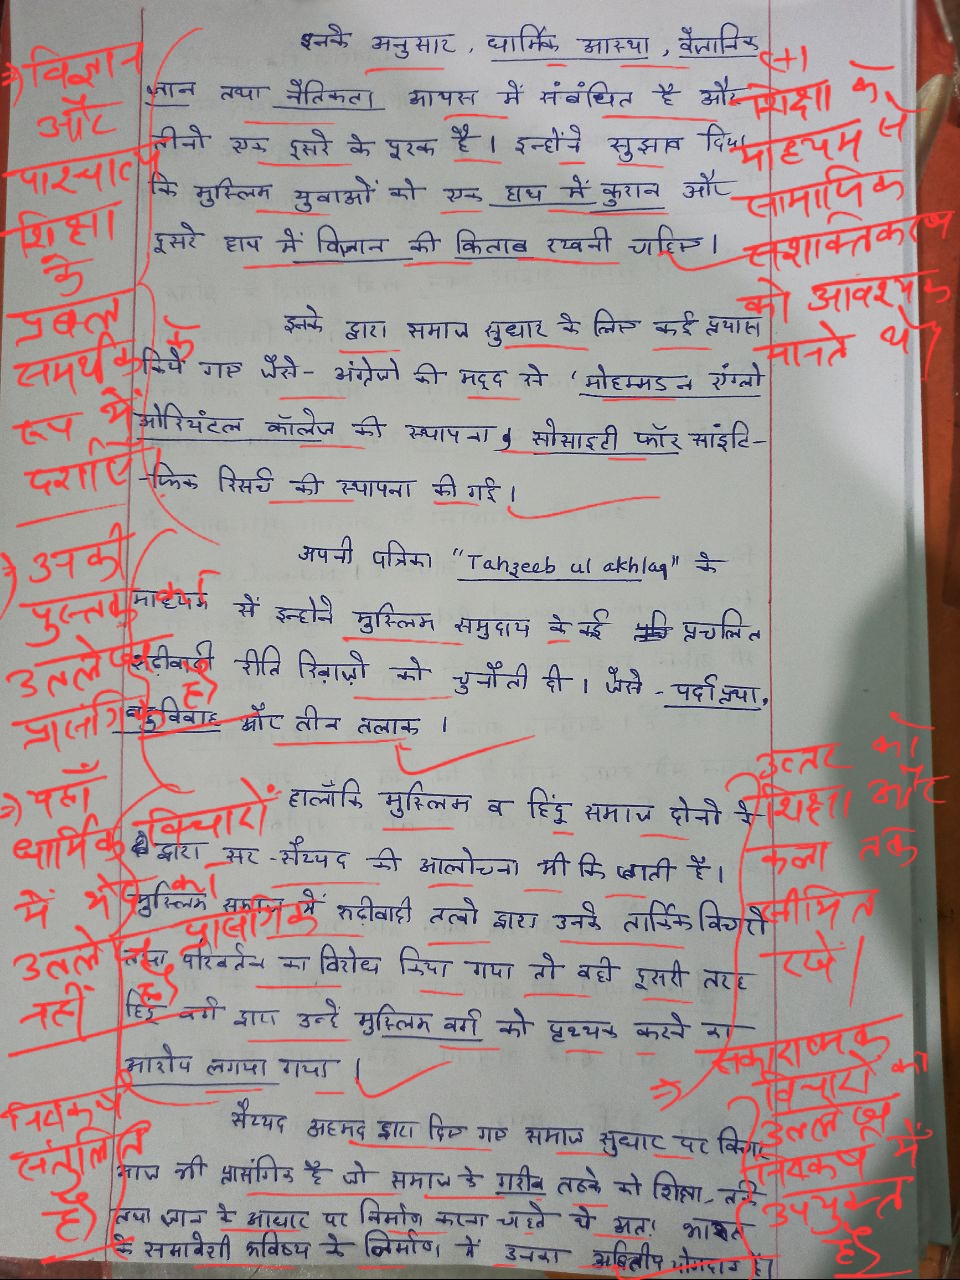 इनके अनुसार, धार्मिक आस्था, वैज्ञानिक
ज्ञान तथा नैतिकता आपस में संबंधित है और
तीनो एक दूसरे के पूरक है। इन्होंने सुझाव दिया
कि मुस्लिम युवाओं को एक हाथ में कुरान और
दूसरे हाथ में विज्ञान की किताब रखनी चाहिए।
इनके द्वारा समाज सुधार के लिए कई प्रयास
किये गए जैसे - अंग्रेजो की मदद से 'मोहम्मडन एंग्लो
ओरियंटल कॉलेज की स्थापना, सोसाइटी फॉर सांइटि-
-फिक रिसर्च की स्थापना की गई।
अपनी पत्रिका "Tahzeeb ul akhlaq" के
माध्यम से इन्होने मुस्लिम समुदाय के कई प्रचलित
रूढ़ीवादी रीति रिवाज़ो को चुनौती दी। जैसे - पर्दा प्रथा,
बहुविवाह और तीन तलाक।
हालाँकि मुस्लिम व हिंदू समाज दोनो के
द्वारा सर-सैय्यद की आलोचना भी कि जाती है।
मुस्लिम समाज में रूढ़ीवादी तत्वो द्वारा उनके तार्किक विचारो
तथा परिवर्तन का विरोध किया गया तो वही दूसरी तरफ
हिंदू वर्ग द्वारा उन्हें मुस्लिम वर्ग को पृथ्थक करने का
आरोप लगाया गया।
सैय्यद अहमद द्वारा दिए गए समाज सुधार पर विचार
आज भी प्रासंगिक है जो समाज के गरीब तबके को शिक्षा, तर्क
तथा ज्ञान के आधार पर निर्माण करना चाहते थे अतः भारत
के समावेशी भविष्य के निर्माण में उनका अद्वितीय योगदान है।
⇒ विज्ञान
और
पाश्चात्य
शिक्षा
के
प्रबल
समर्थक के
रूप में
दर्शाएँ।
⇒ उनकी
पुस्तक का
उल्लेख
प्रासंगिक है।
⇒ यहाँ
धार्मिक विचारों
में भेद का
उल्लेख प्रासंगिक
नहीं है।
निष्कर्ष
संतुलित
है।
शिक्षा के
माध्यम से
सामाजिक
सशक्तिकरण
को आवश्यक
मानते थे।
उत्तर को
शिक्षा और
कला तक
सीमित
रखें।
⇒ सकारात्मक
विचारों का
उल्लेख
निष्कर्ष में
उपयुक्त
है।